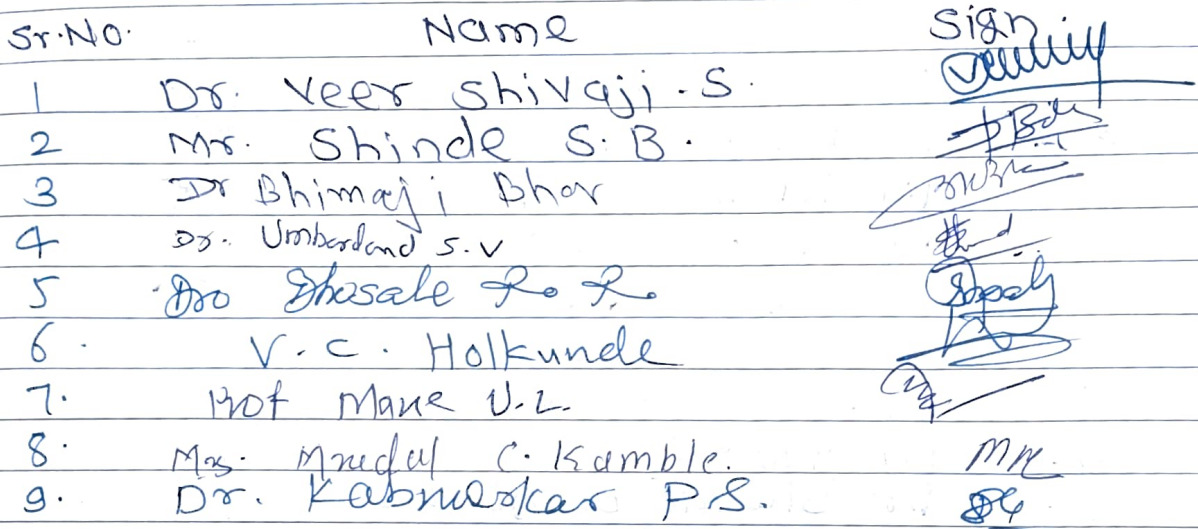 Sr.No. Name Sign
1 Dr. Veer Shivaji.S.
2 Mr. Shinde S.B.
3 Dr Bhimaji Bhor
4 Dr. Umbardand S.V
5 Dr. Bhosale R. R.
6. V.C. Holkunde
7. Prof Mane U.L.
8. Mrs. Mrudul C. Kamble. MM
9. Dr. P.S.